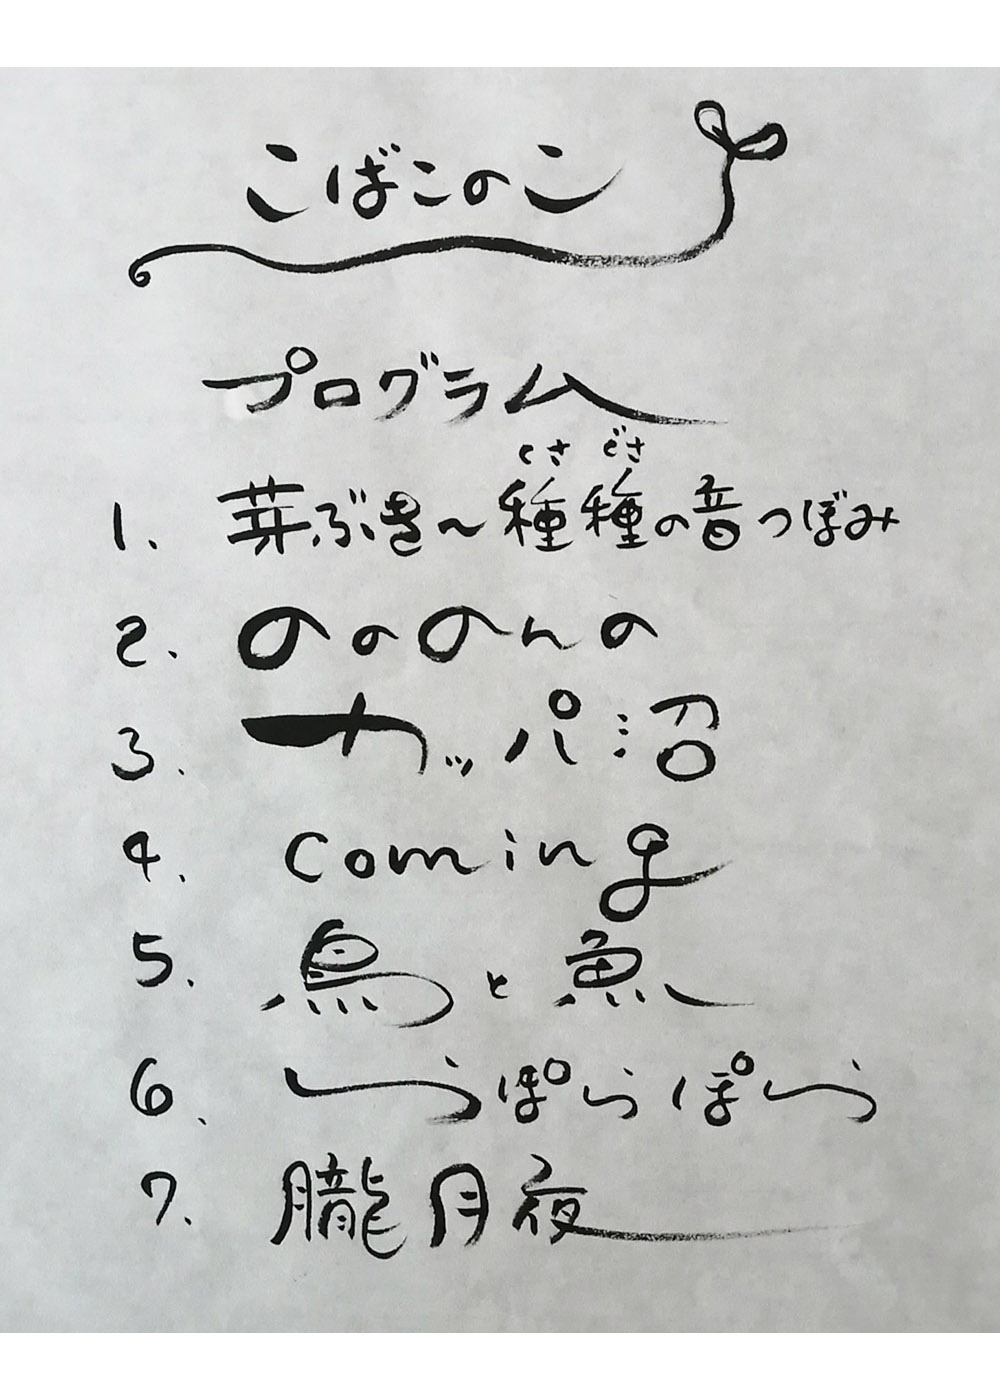 こばこのこ
プログラム
くさ ぐさ
1. 芽ぶき〜種種の音つぼみ
2. のののんの
3. カッパ沼
4. coming
5. 鳥と魚
6. らぽらぽら
7. 朧月夜